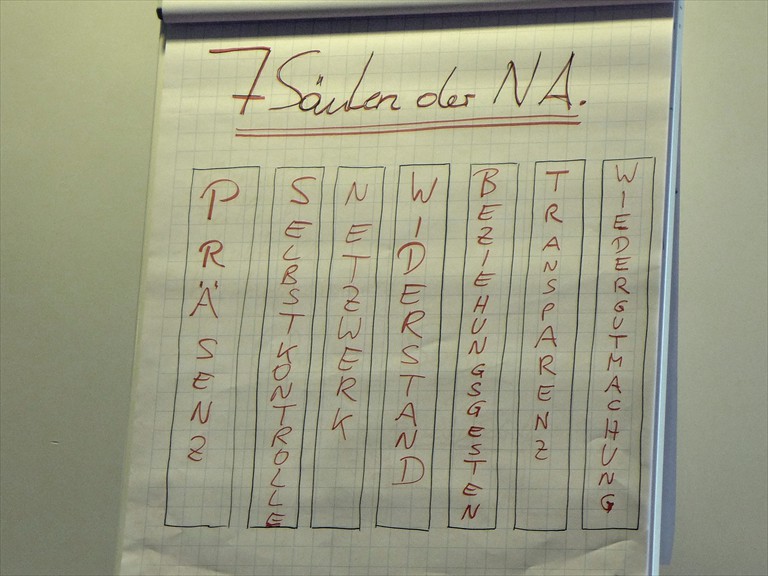 7 Säulen der NA.
PRÄSENZ
SELBSTKONTROLLE
NETZWERK
WIDERSTAND
BEZIEHUNGSGESTEN
TRANSPARENZ
WIEDERGUTMACHUNG